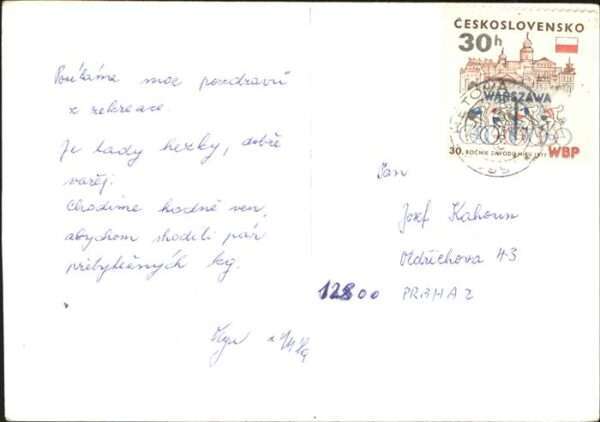 Posíláme moc pozdravů
z rekreace.
Je tady hezky, dobře
vařej.
Chodíme hodně ven,
abychom shodili pár
přebytečných kg.
ČESKOSLOVENSKO
30h
WARSZAWA
30. ROČNÍK ZÁVODU MÍRU 1977 WBP
Pan
Josef Kahoun
Oldřichova 43
12800 PRAHA 2